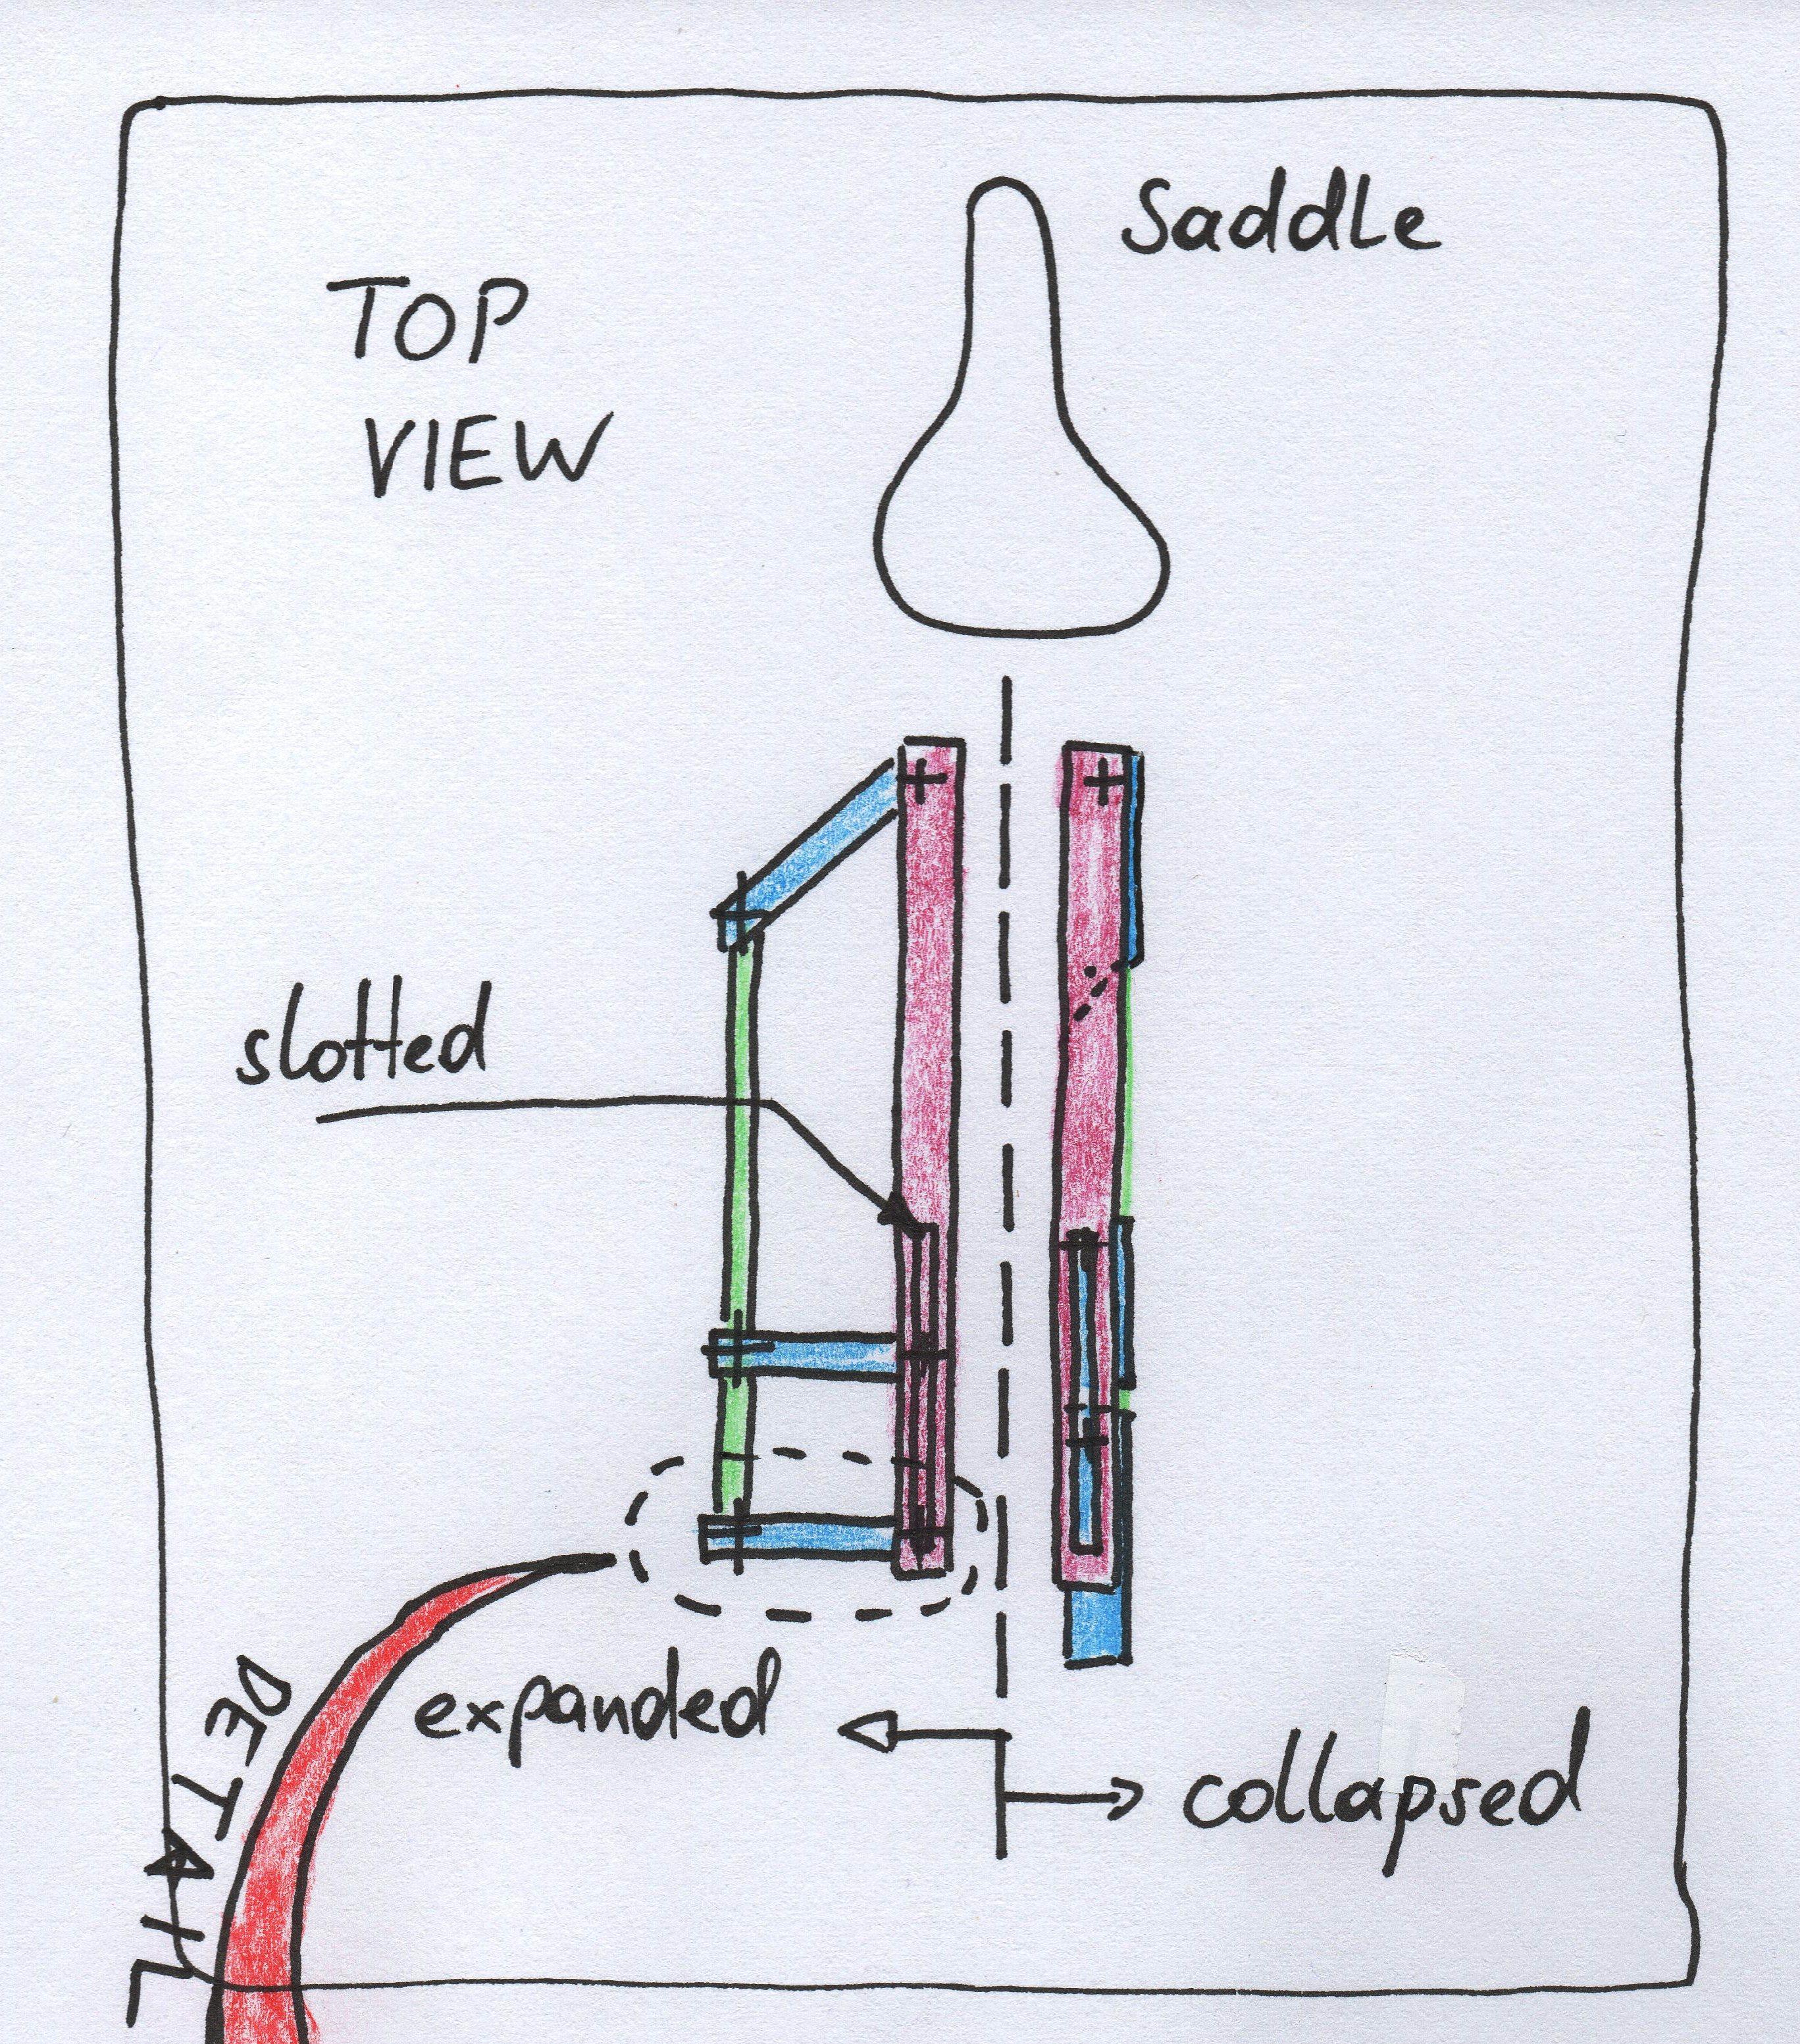 Saddle
TOP
VIEW
slotted
expanded
collapsed
DETAIL